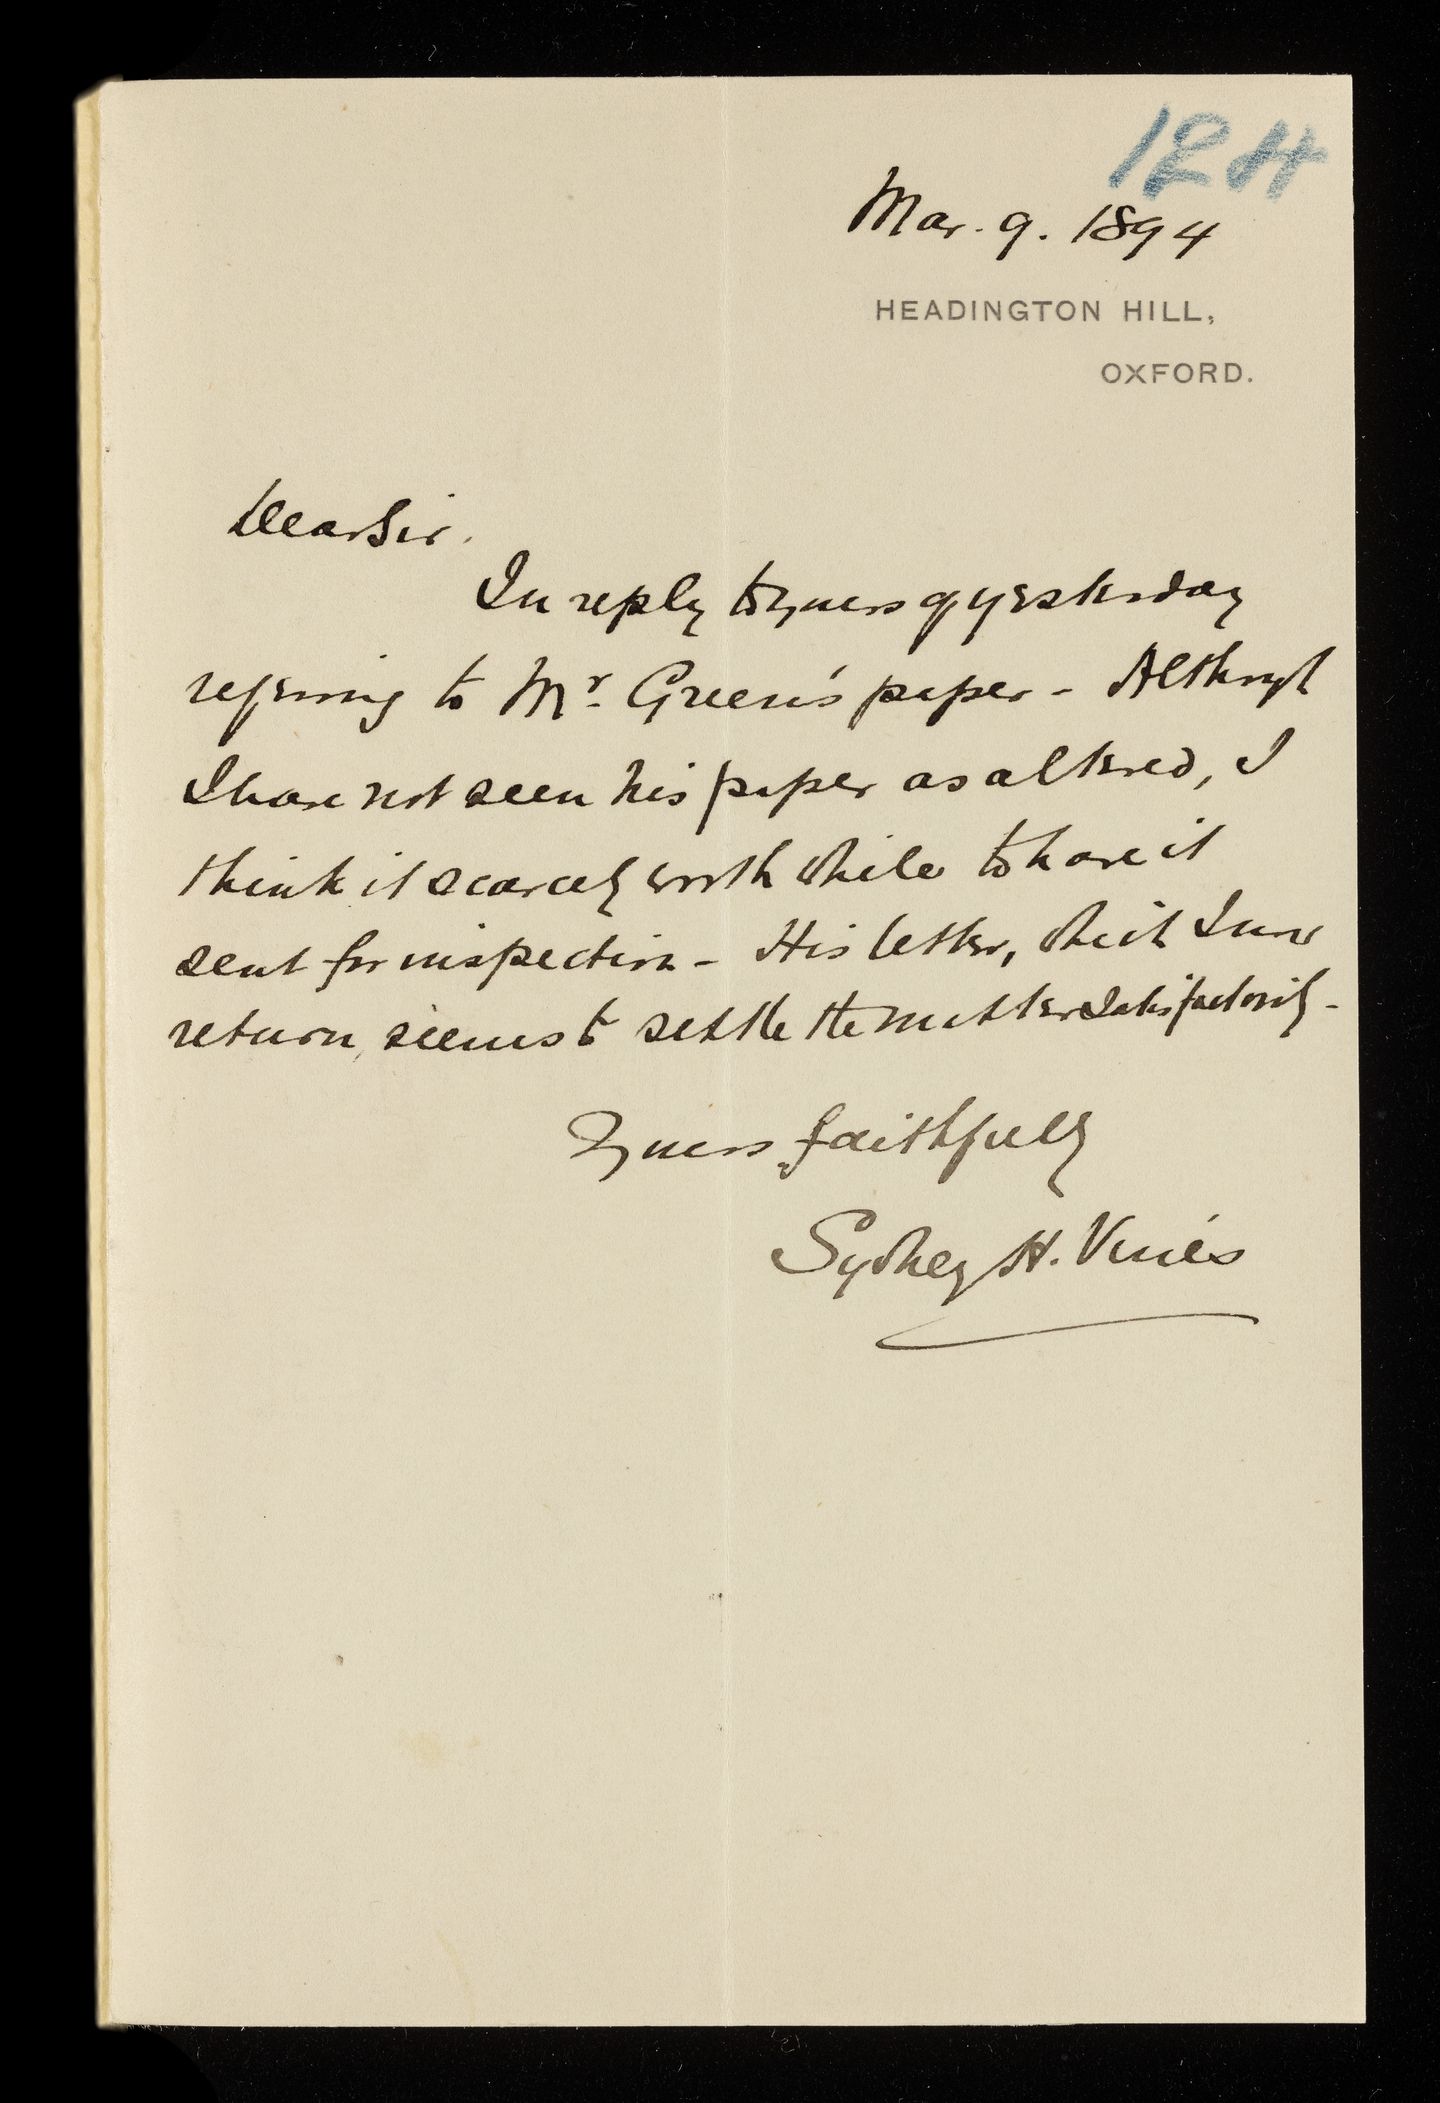 124
Mar. 9. 1894
HEADINGTON HILL,
OXFORD.
Dear Sir.
In reply to yours of yesterday
referring to Mr. Green's paper - Although
I have not seen his paper as altered, I
think it scarcely worth while to have it
sent for inspection - His letter, which I now
return, seems to settle the matter satisfactorily -
Yours faithfully
Sydney H. Vines